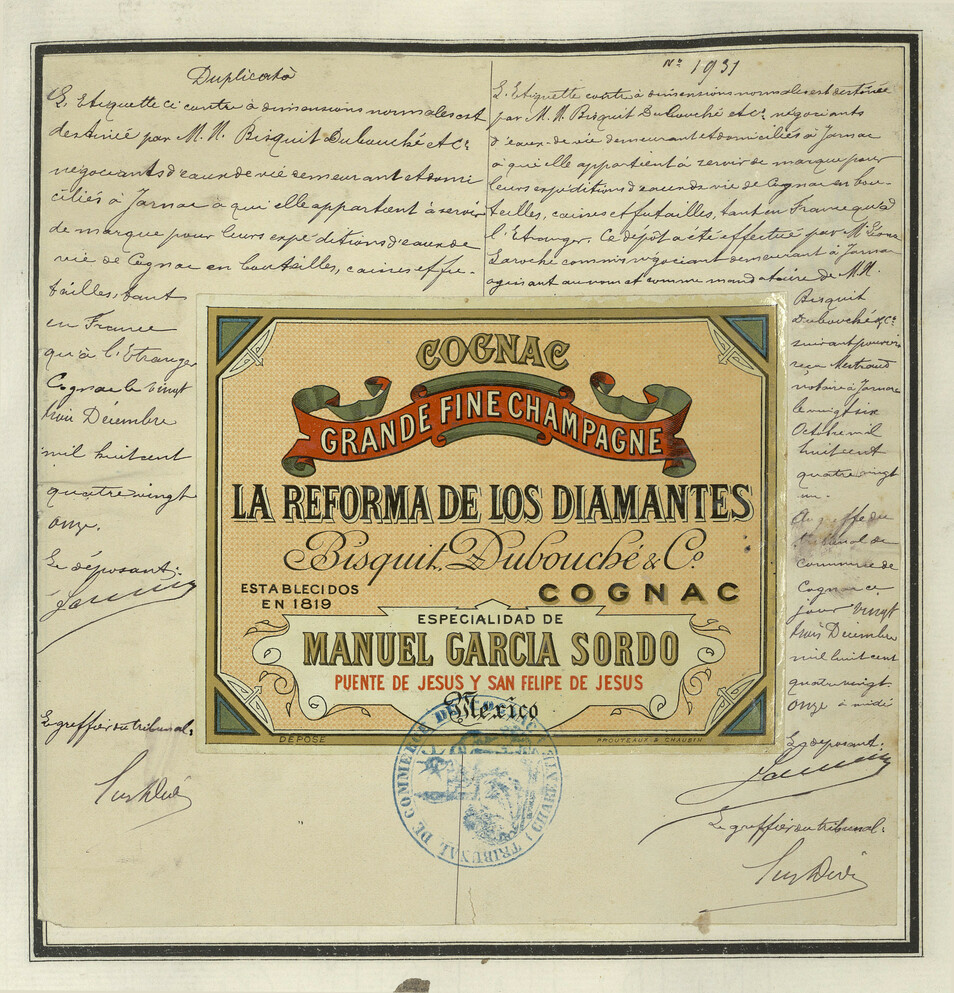 Duplicata
L'Etiquette ci contre à dimensions normales est
destinée par M.M. Bisquit Dubouché et Cie
négociants d'eaux de vie demeurant et domi
ciliés à Jarnac à qui elle appartient à servir
de marque pour leurs expéditions d'eaux de
vie de Cognac en bouteilles, caisses et fu-
tailles, tant
en France
qu'à l'étranger
Cognac le vingt
trois Décembre
mil huit cent
quatre vingt
onze.
Le déposant:
Le greffier du tribunal:
No 1931
L'Etiquette contre à dimensions normales est destinée
par M.M. Bisquit Dubouché et Cie négociants
d'eaux de vie demeurant et domiciliés à Jarnac
à qui elle appartient à servir de marque pour
leurs expéditions d'eaux de vie de Cognac en bou-
teilles, caisses et futailles, tant en France qu'à
l'Etranger. Ce dépôt a été effectué par Mr Léon
Laroche commis négociant demeurant à Jarnac
agissant au nom et comme mandataire de M.M.
Bisquit
Dubouché & Cie
suivant pouvoir
reçu Mestraud
notaire à Jarnac
le vingt six
Octobre mil
huit cent
quatre vingt
un.
Au greffe du
tribunal de
commerce de
Cognac ce
jour vingt
trois Décembre
mil huit cent
quatre vingt
onze à midi
Le déposant:
Le greffier du tribunal:
COGNAC
GRANDE FINE CHAMPAGNE
LA REFORMA DE LOS DIAMANTES
Bisquit, Dubouché & Co.
ESTABLECIDOS
EN 1819
COGNAC
ESPECIALIDAD DE
MANUEL GARCIA SORDO
PUENTE DE JESUS Y SAN FELIPE DE JESUS
Mexico
DÉPOSÉ
PROUTEAUX & CHAUBIN
TRIBUNAL DE COMMERCE DE